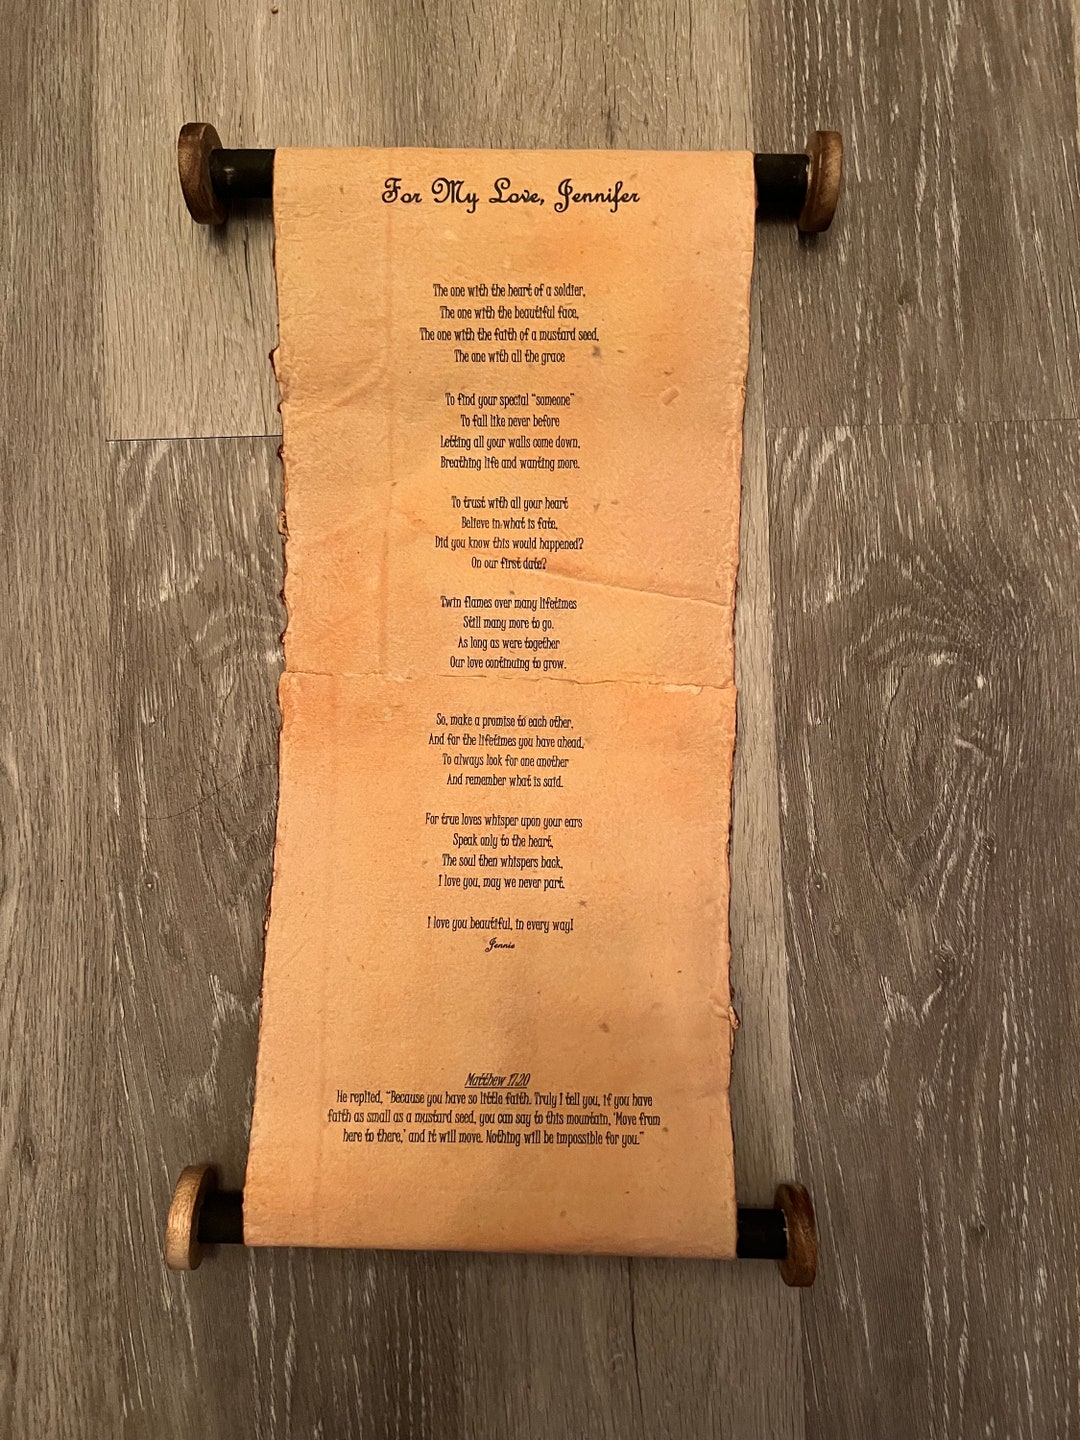 For My Love, Jennifer
The one with the heart of a soldier,
The one with the beautiful face,
The one with the faith of a mustard seed,
The one with all the grace
To find your special "someone"
To fall like never before
Letting all your walls come down,
Breathing life and wanting more.
To trust with all your heart
Believe in what is fate,
Did you know this would happened?
On our first date?
Twin flames over many lifetimes
Still many more to go,
As long as were together
Our love continuing to grow.
So, make a promise to each other,
And for the lifetimes you have ahead,
To always look for one another
And remember what is said.
For true loves whisper upon your ears
Speak only to the heart,
The soul then whispers back,
I love you, may we never part.
I love you beautiful, in every way!
Jennie
Matthew 17:20
He replied, "Because you have so little faith. Truly I tell you, if you have
faith as small as a mustard seed, you can say to this mountain, 'Move from
here to there,' and it will move. Nothing will be impossible for you."